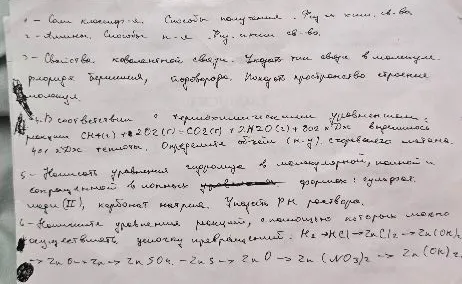 1 - Соли классиф-я. Способы получения. Физ и хим. св-ва.
2 - Амины. Способы п-я. Физ. и хим св-во.
3 - Свойства ковалентной связи. Указать тип связи в молекуле
хлорида бериллия, водорода. Показать пространство строения
молекул.
4. В соответствии с термохимическим уравнением:
реакции CH4(г) + 2O2(г) = CO2(г) + 2H2O(г) + 802 кДж выделилось
401 кДж теплоты. Определите объём (н.у) сгоревшего метана.
5 - Написать уравнения гидролиза в молекулярной, полной и
сокращенной в ионных формах: сульфат
меди (II), карбонат натрия. Указать PH раствора.
6 - Напишите уравнения реакций, с помощью которых можно
осуществить цепочку превращений. H2 → HCl → ZnCl2 → Zn(OH)2
→ ZnO → Zn → ZnSO4 - ZnS → ZnO → Zn(NO3)2 → Zn(OH)2